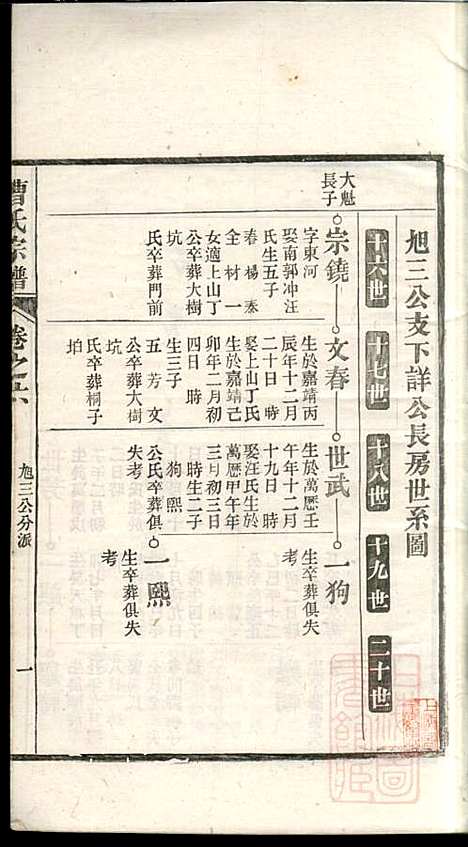 旭三公支下詳公長房世系圖
十六世
十七世
十八世
十九世
二十世
大魁
長子
宗鐃
字東河
娶南郭冲汪
氏生五子
春 楊 泰
全 材 一
女適上山丁
公卒葬大樹
坑
氏卒葬門前
文春
生於嘉靖丙
辰年十二月
二十日 時
娶上山丁氏
生於嘉靖己
卯年二月初
四日 時
生三子
五 芳 文
公卒葬大樹
坑
氏卒葬桐子
垍
世武
生於萬歷壬
午年十二月
十九日 時
娶汪氏生於
萬歷甲午年
三月初三日
時生二子
狗 熙
公氏卒葬俱
失考
一狗
生卒葬俱失
考
一熙
生卒葬俱失
考
曹氏宗譜
卷之六
旭三公分派
一